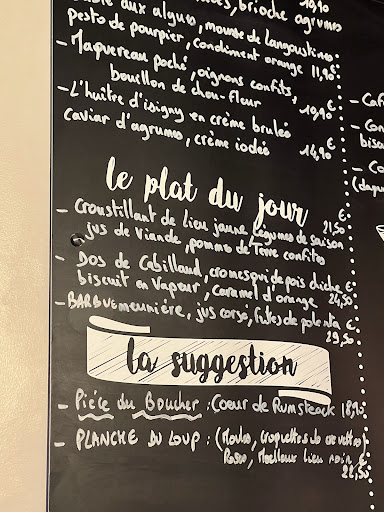 aux algues, mousse de langoustines
brioche agrumes
pesto de pourpier, condiment orange 11,90
- Maquereau poché, oignons confits,
bouillon de chou-fleur 10,90
- L'huître d'isigny en crème brulée
caviar d'agrumes, crème iodée 14,90
le plat du jour
- Croustillant de Lieu jaune, Légumes de saison
jus de Viande, pomme de Terre confite 21,50 €
- Dos de Cabillaud, cromesqui de pois chiche
biscuit en Vapeur, Caramel d'orange 24,50 €
- BARBUE meunière, jus corsé, frites de polenta €
29,50
la suggestion
- Pièce du Boucher : Coeur de Rumsteack 18,90
- PLANCHE DU LOUP : (Moules, Croquettes de crevettes,
Moelleux lieu noir €
22,50
- Café
- Co
bisc
- Co
(depu